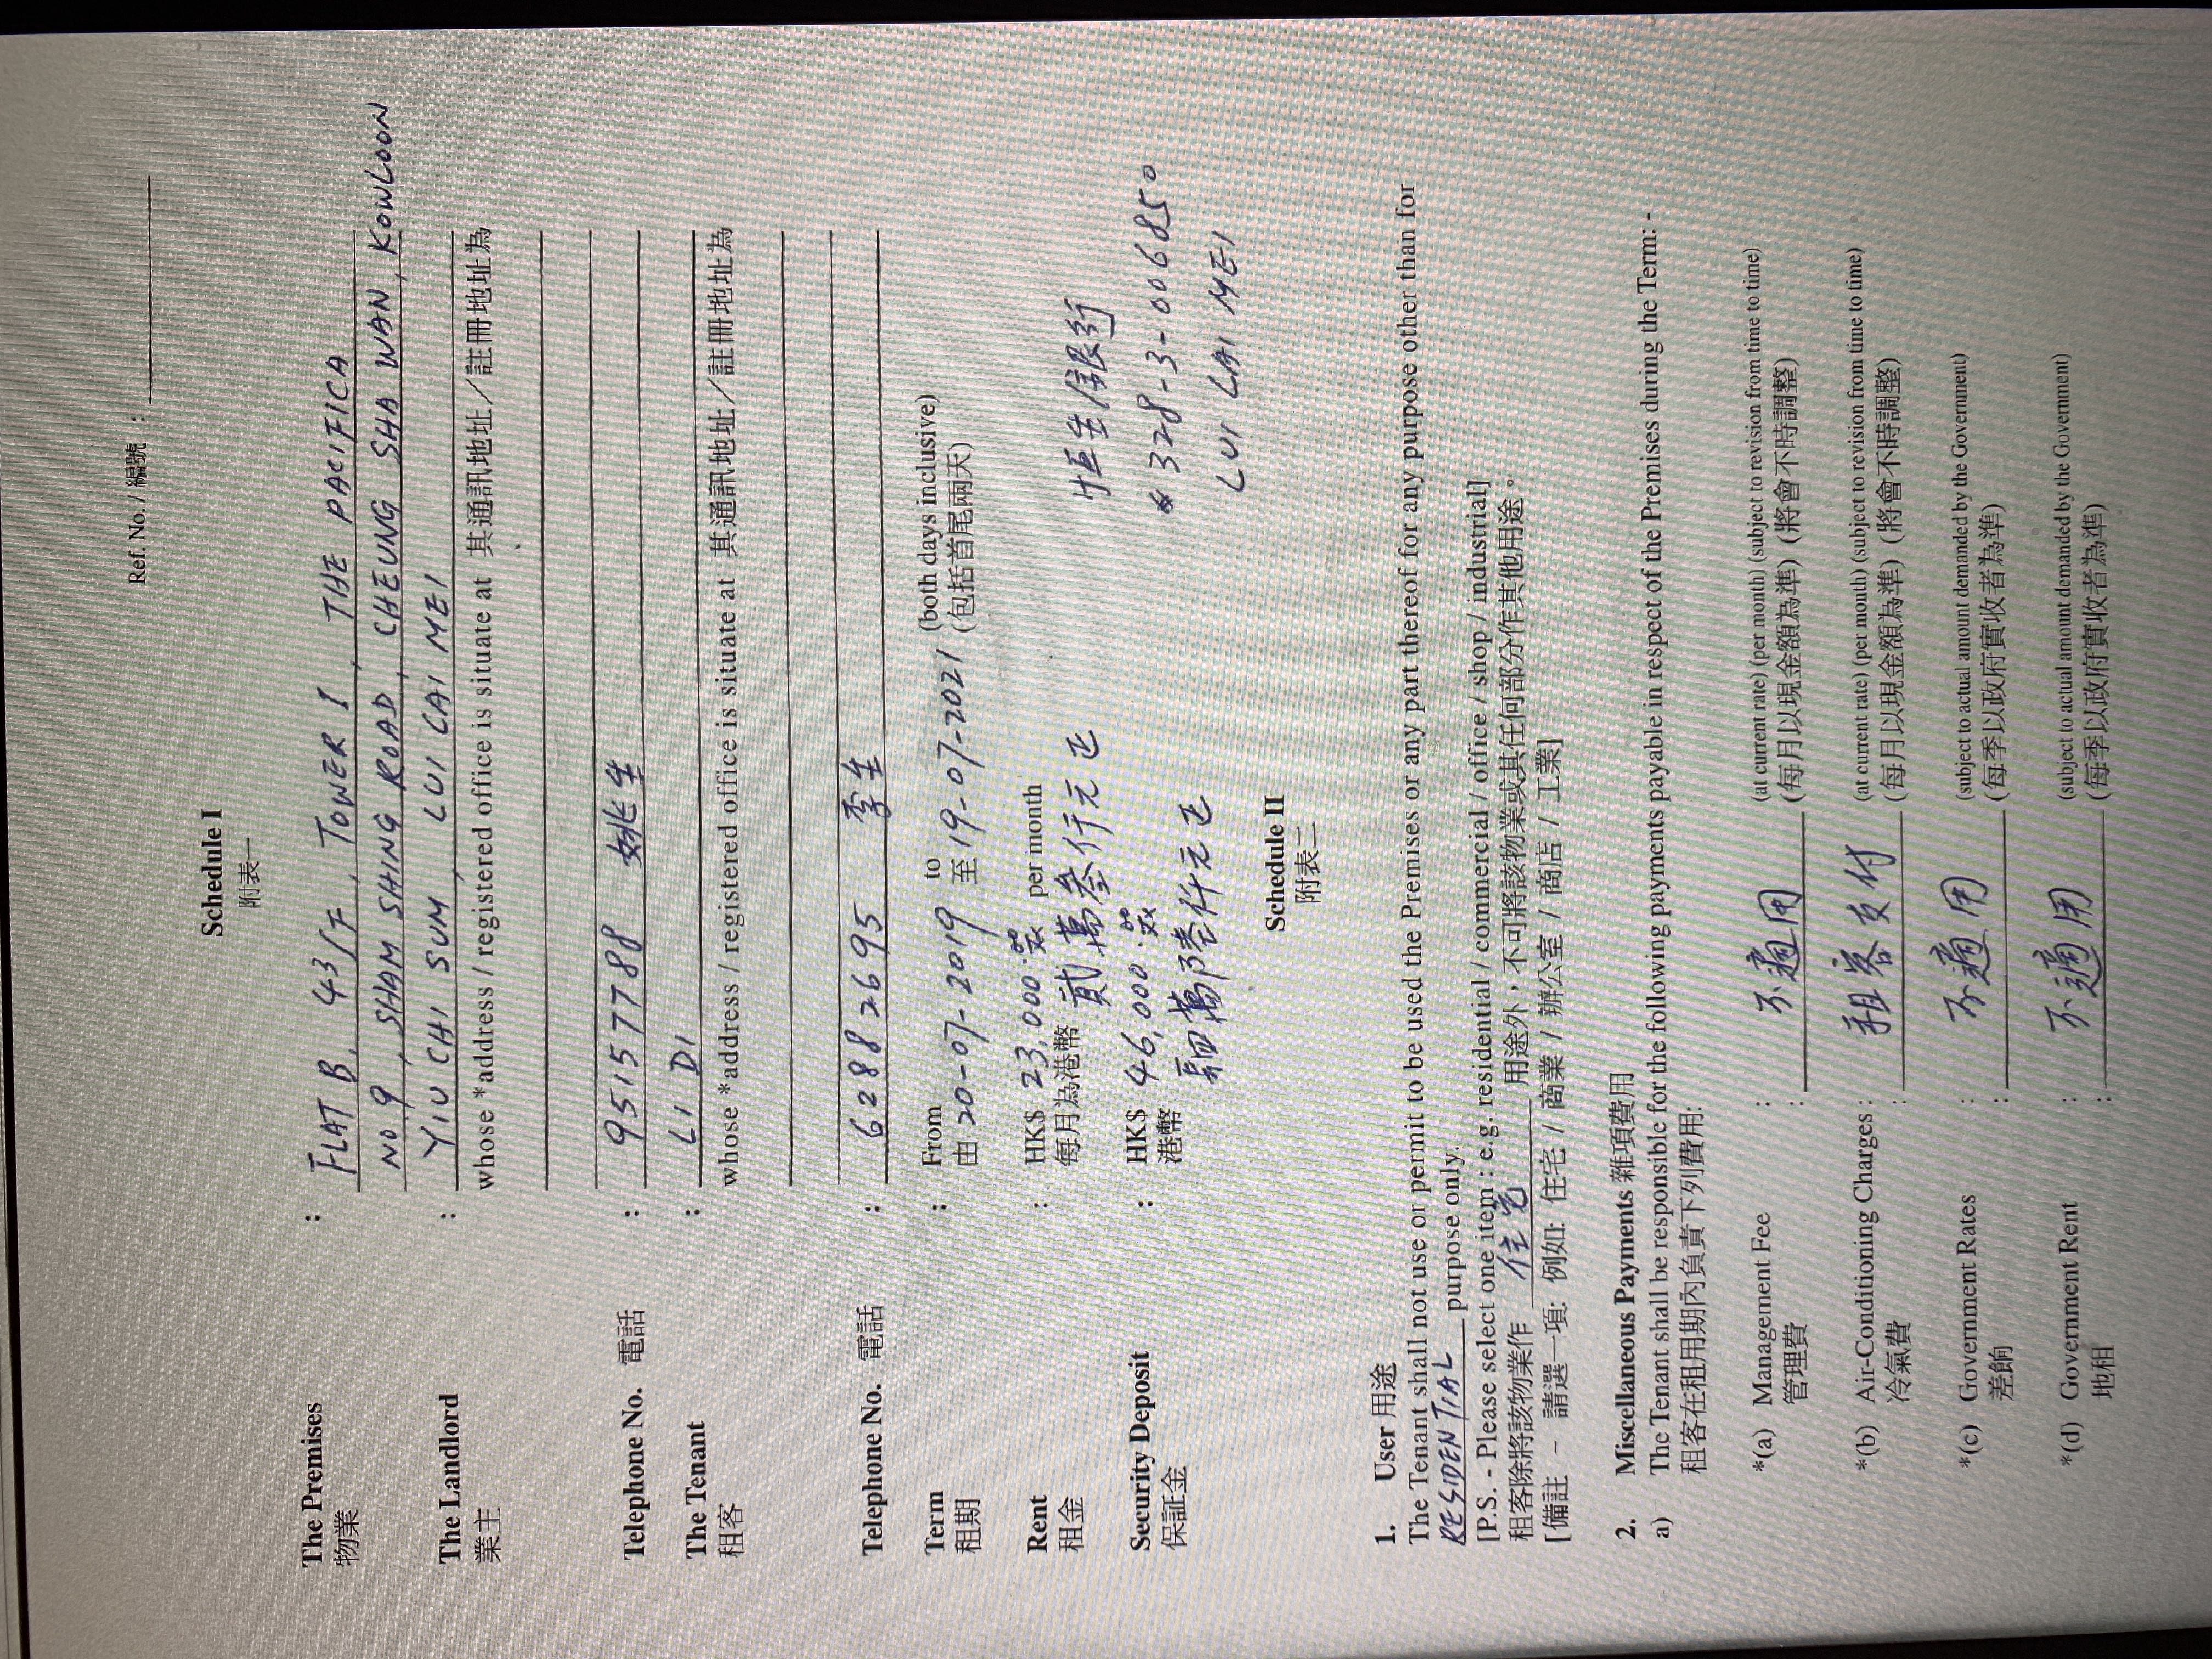 Ref. No. / 編號 :
Schedule I
附表一
The Premises : FLAT B, 43/F, TOWER I, THE PACIFICA
物業 NO 9, SHAM SHING ROAD, CHEUNG SHA WAN, KOWLOON
The Landlord : YIU CHI SUM, LUI CAI MEI
業主 whose *address / registered office is situate at 其通訊地址／註冊地址為
Telephone No. 電話 : 95157788 姚生
The Tenant : LI DI
租客 whose *address / registered office is situate at 其通訊地址／註冊地址為
Telephone No. 電話 : 62882695 李生
Term : From to (both days inclusive)
租期 由 20-07-2019 至 19-07-2021 (包括首尾兩天)
Rent : HK$ 23,000.00 per month
租金 每月為港幣 貳萬叁仟元正
恒生銀行
Security Deposit : HK$ 46,000.00 # 328-3-006850
保証金 港幣 四萬陸仟元正 LUI LAI MEI
Schedule II
附表二
1. User 用途
The Tenant shall not use or permit to be used the Premises or any part thereof for any purpose other than for
RESIDENTIAL purpose only.
[P.S. - Please select one item : e.g. residential / commercial / office / shop / industrial]
租客除將該物業作 住宅 用途外，不可將該物業或其任何部分作其他用途。
[備註 － 請選一項: 例如: 住宅 / 商業 / 辦公室 / 商店 / 工業]
2. Miscellaneous Payments 雜項費用
a) The Tenant shall be responsible for the following payments payable in respect of the Premises during the Term: -
租客在租用期內負責下列費用:
*(a) Management Fee : 不適用 (at current rate) (per month) (subject to revision from time to time)
管理費 : (每月以現金額為準) (將會不時調整)
*(b) Air-Conditioning Charges : 租客支付 (at current rate) (per month) (subject to revision from time to time)
冷氣費 : (每月以現金額為準) (將會不時調整)
*(c) Government Rates : 不適用 (subject to actual amount demanded by the Government)
差餉 : (每季以政府實收者為準)
*(d) Government Rent : 不適用 (subject to actual amount demanded by the Government)
地租 : (每季以政府實收者為準)